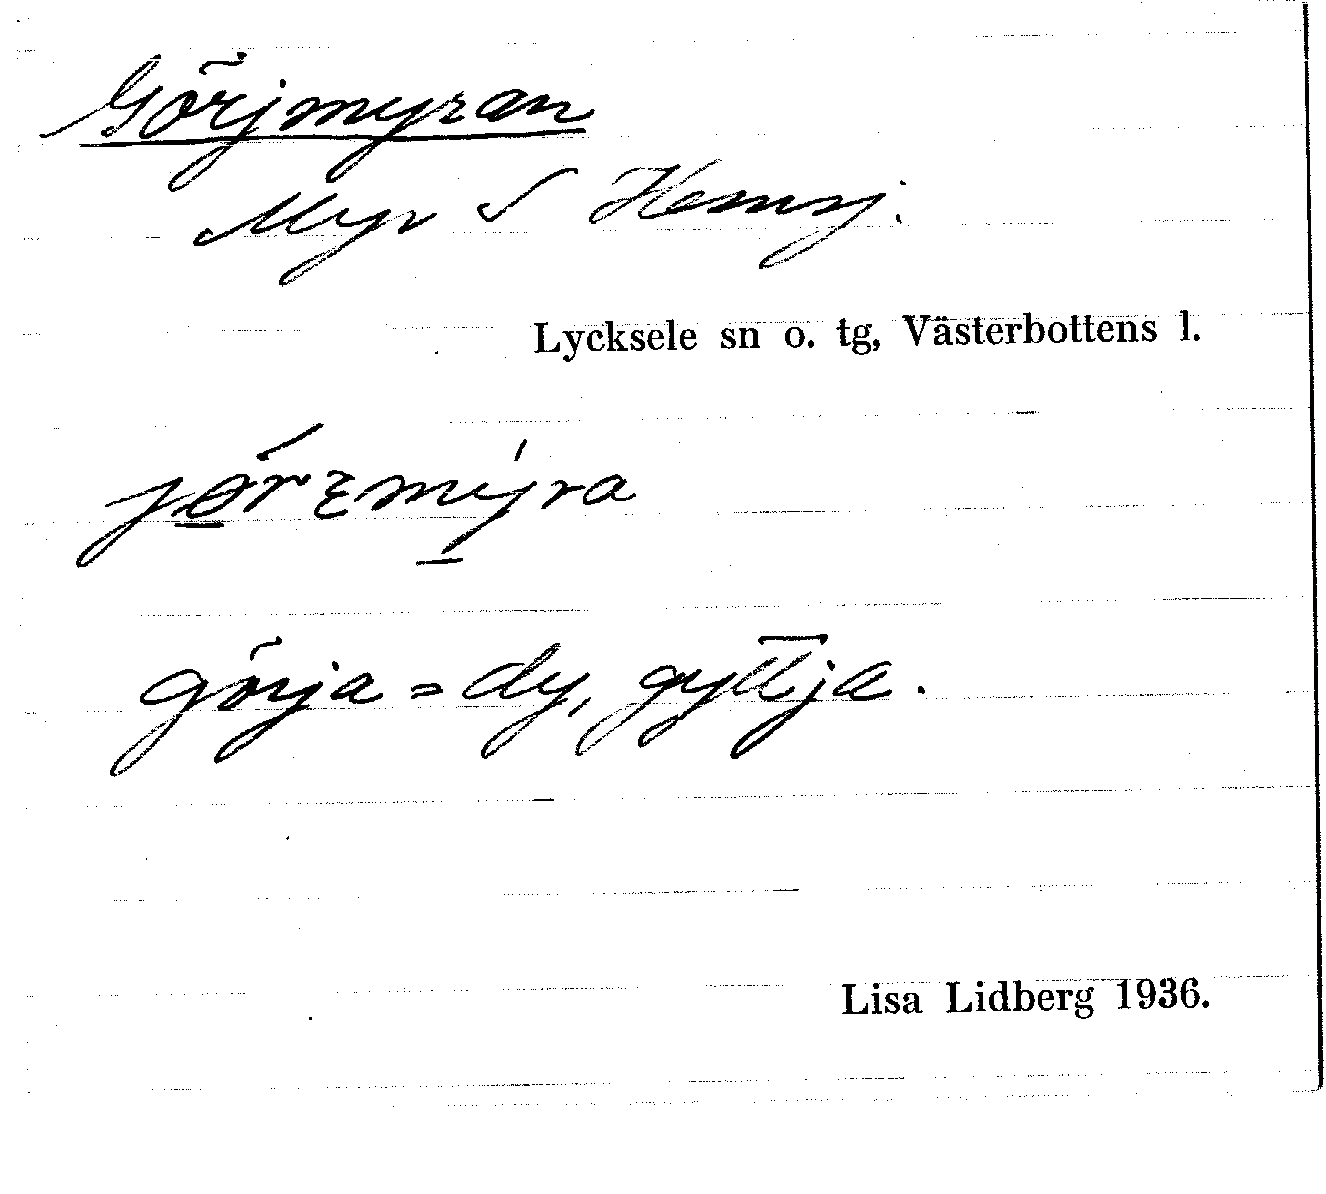 Görjmyran
Myr S Hemsj.
Lycksele sn o. tg, Västerbottens l.
görja = dy, gyttja.
Lisa Lidberg 1936.